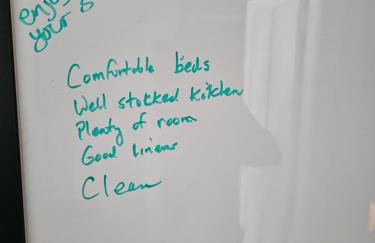 enjoy
your
Comfortable beds
Well stocked kitchen
Plenty of room
Good linens
Clean